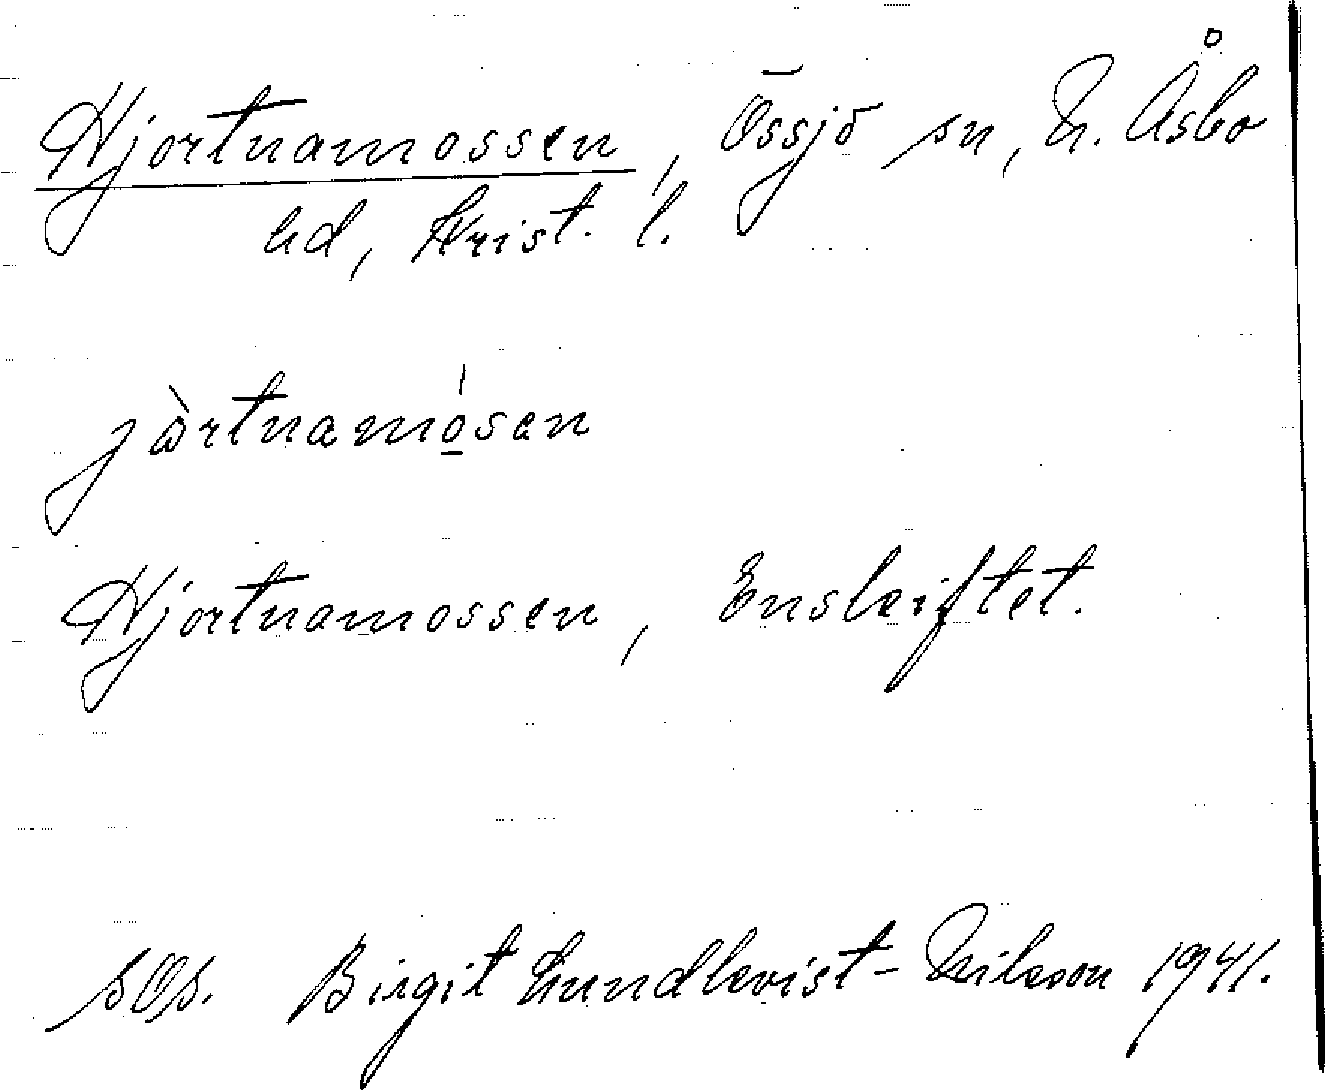 Hjortnamossen, Össjö sn, N. Åsbo
hd, Krist. l.
jòrtnamósan
Hjortnamossen, Enskiftet.
sOs. Birgit Lundkvist-Nilsson 1941.